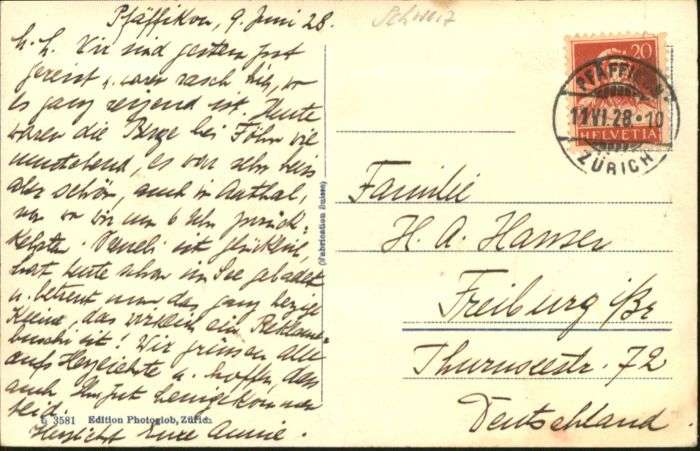 Pfäffikon, 9. Juni 28.
Schweiz
Wir sind gestern gut
gereist u. waren rasch hier, wo
es ganz reizend ist. Heute
waren die Berge bei Föhn
es war sehr heiss
aber schön, auch in Aathal,
von wo wir um 6 Uhr zurück-
kehrten. Vreneli ist glücklich,
hat heute schon im See gebadet
u. betreut nun das ganz herzige
Kleine, das wirklich ein Reklame-
buschi ist! Wir grüssen alle
aufs Herzlichste u. hoffen, dass
auch Ihr gut heimgekommen
seid.
Herzlichst Eure Annie.
6 3581 Edition Photoglob, Zürich
(Fabrication Suisse)
20
HELVETIA
PFÄFFIKON
11.VI.28-10
ZÜRICH
Familie
H. A. Hanser
Freiburg i/Br
Thurnseestr. 72
Deutschland.